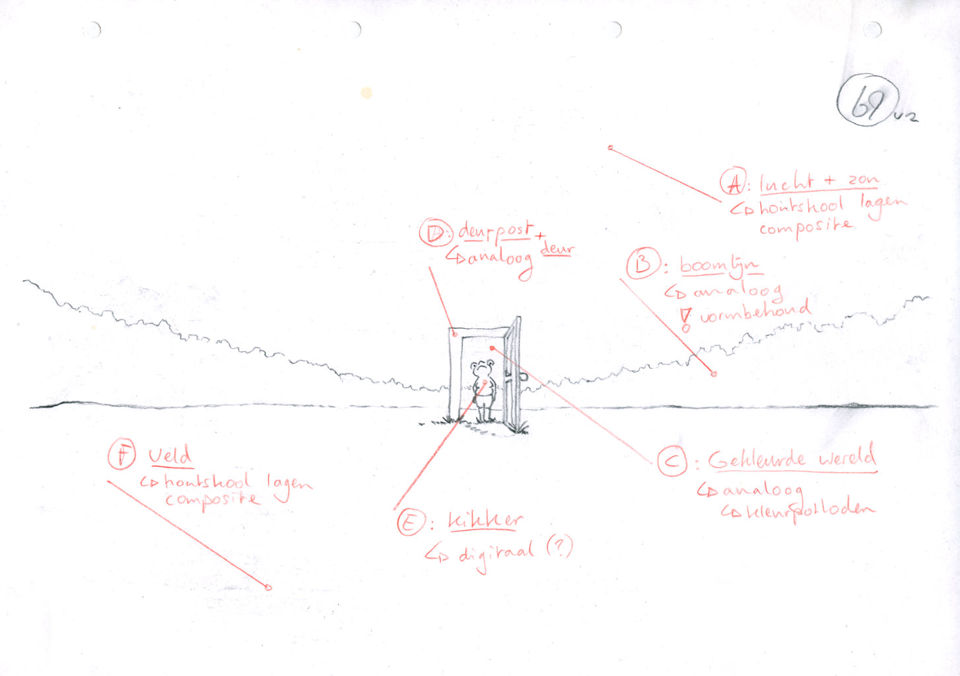 69 v2
A: lucht + zon
↳ houtskool lagen
composite
D: deurpost + deur
↳ analoog
B: boomlijn
↳ analoog
! vormbehoud
F veld
↳ houtskool lagen
composite
C: Gekleurde wereld
↳ analoog
↳ kleurpotloden
E: kikker
↳ digitaal (?)